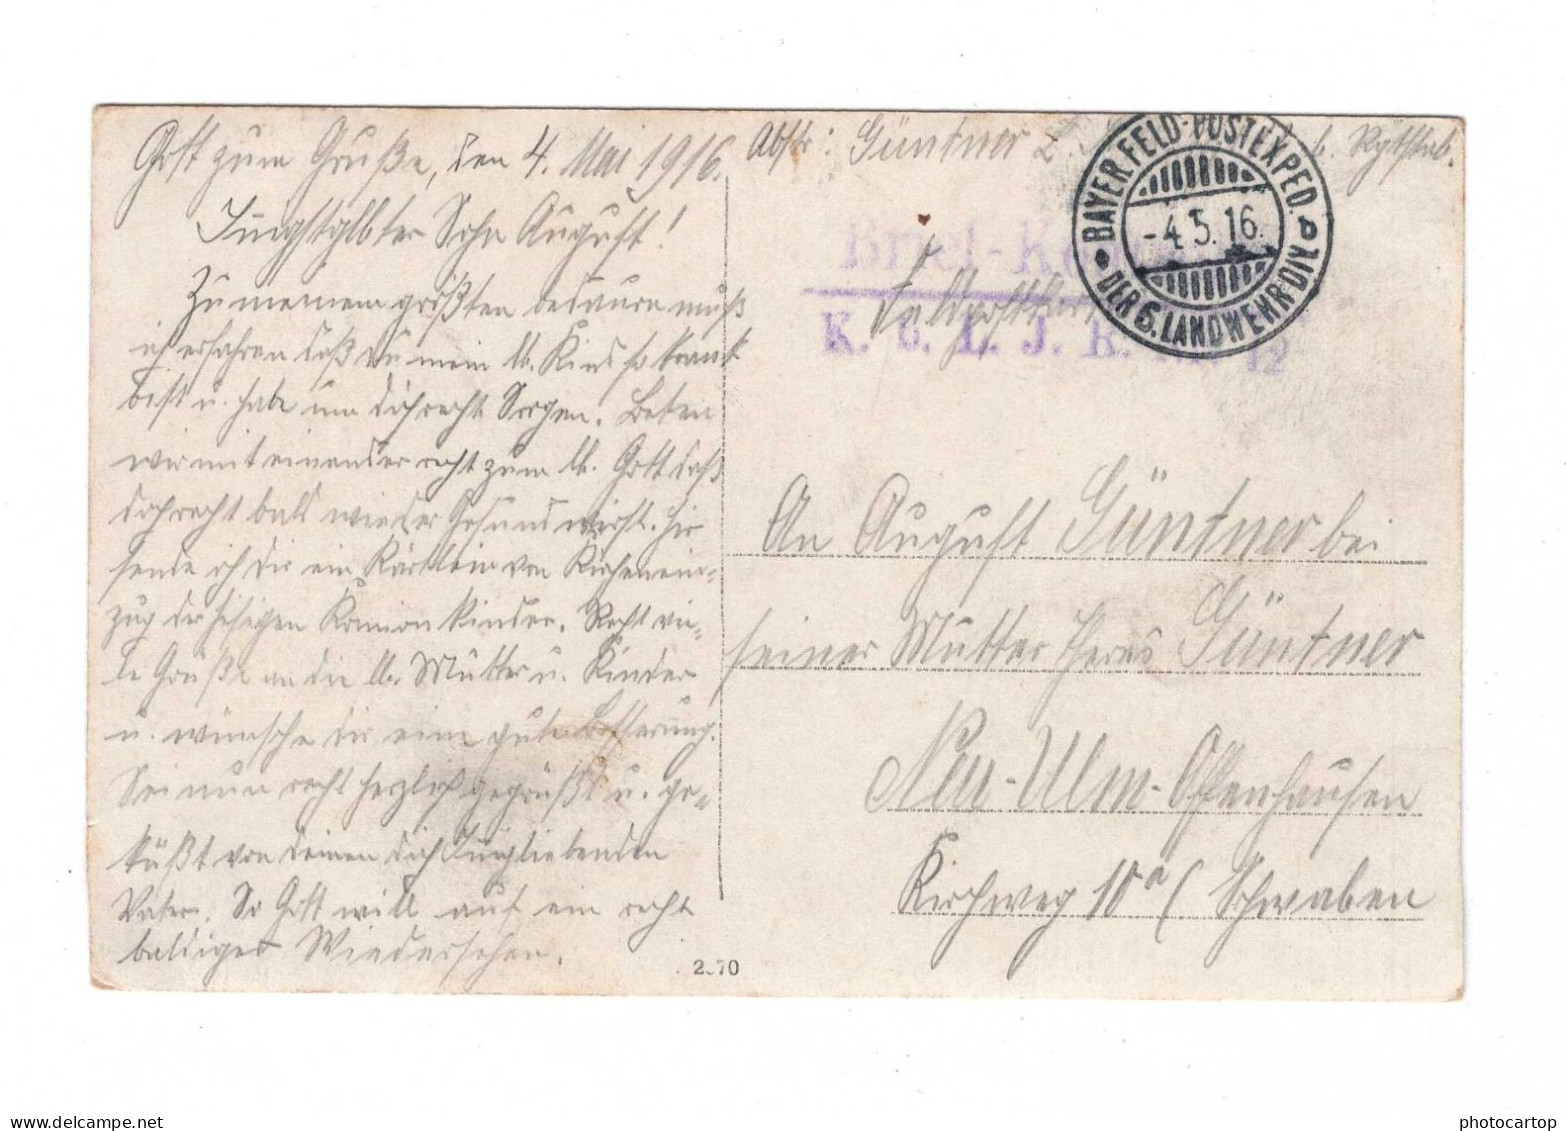 Gott zum Gruße, den 4. Mai 1916.
Innigstglbter Sohn August!
Zu meinem größten bedauern muß
ich erfahren daß du mein lb. Kind so krank
bist u. habe um dich recht Sorgen. Beten
wir mit einander recht zum lb. Gott daß
doch recht bald wieder Gesund wirst. Hir
sende ich dir ein Kärtlein von Kirchenein-
zug der hisigen Komion kinder. Recht vie-
le Grüße an die lb. Mutter u. Kinder
u. wünsche dir eine gute Besserung.
Sei nun recht herzlich gegrüßt u. ge-
küßt von deinen dich Innigliebenden
Vater. So Gott will auf ein recht
baldiges Wiedersehen.
Abstr: Günttner b. Rgtstab.
BAYER. FELD-POSTEXPED. b
-4.5.16.
DER 6. LANDWEHR DIV.
Brief-
K. B. L. J. R. 12
Feldpostkarte
An August Günttner bei
seiner Mutter Theres Günttner
Neu-Ulm-Offenhausen
Kirchweg 10a (Schwaben
2570
www.delcampe.net
photocartop